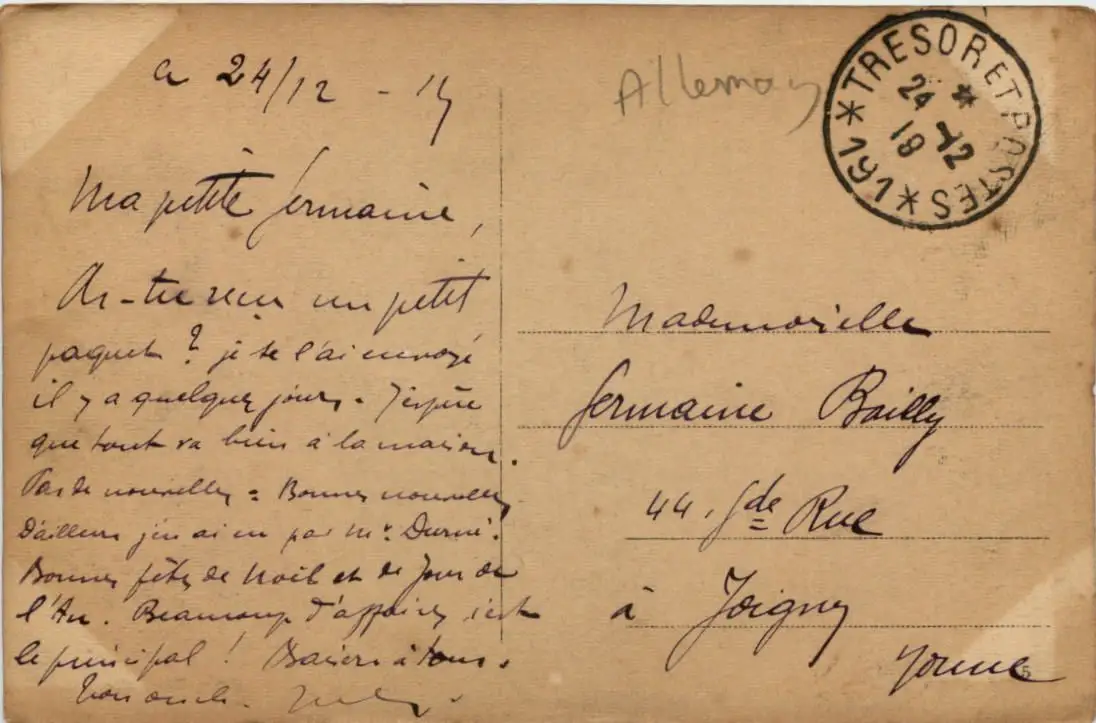 a 24/12 - 15
Ma petite Germaine,
As-tu reçu un petit
paquet ? je te l'ai envoyé
il y a quelques jours. J'espère
que tout va bien à la maison.
Pas de nouvelles = Bonnes nouvelles
D'ailleurs j'en ai eu par Mr.
Bonnes fêtes de Noël et de Jour de
l'An. Beaucoup d'affaires, c'est
le principal ! Baisers à tous.
Ton oncle.
Allemoy
*TRESOR ET POSTES*
24 * 12
19
191
Mademoiselle
Germaine Bailly
44, Gde Rue
à Joigny
Yonne